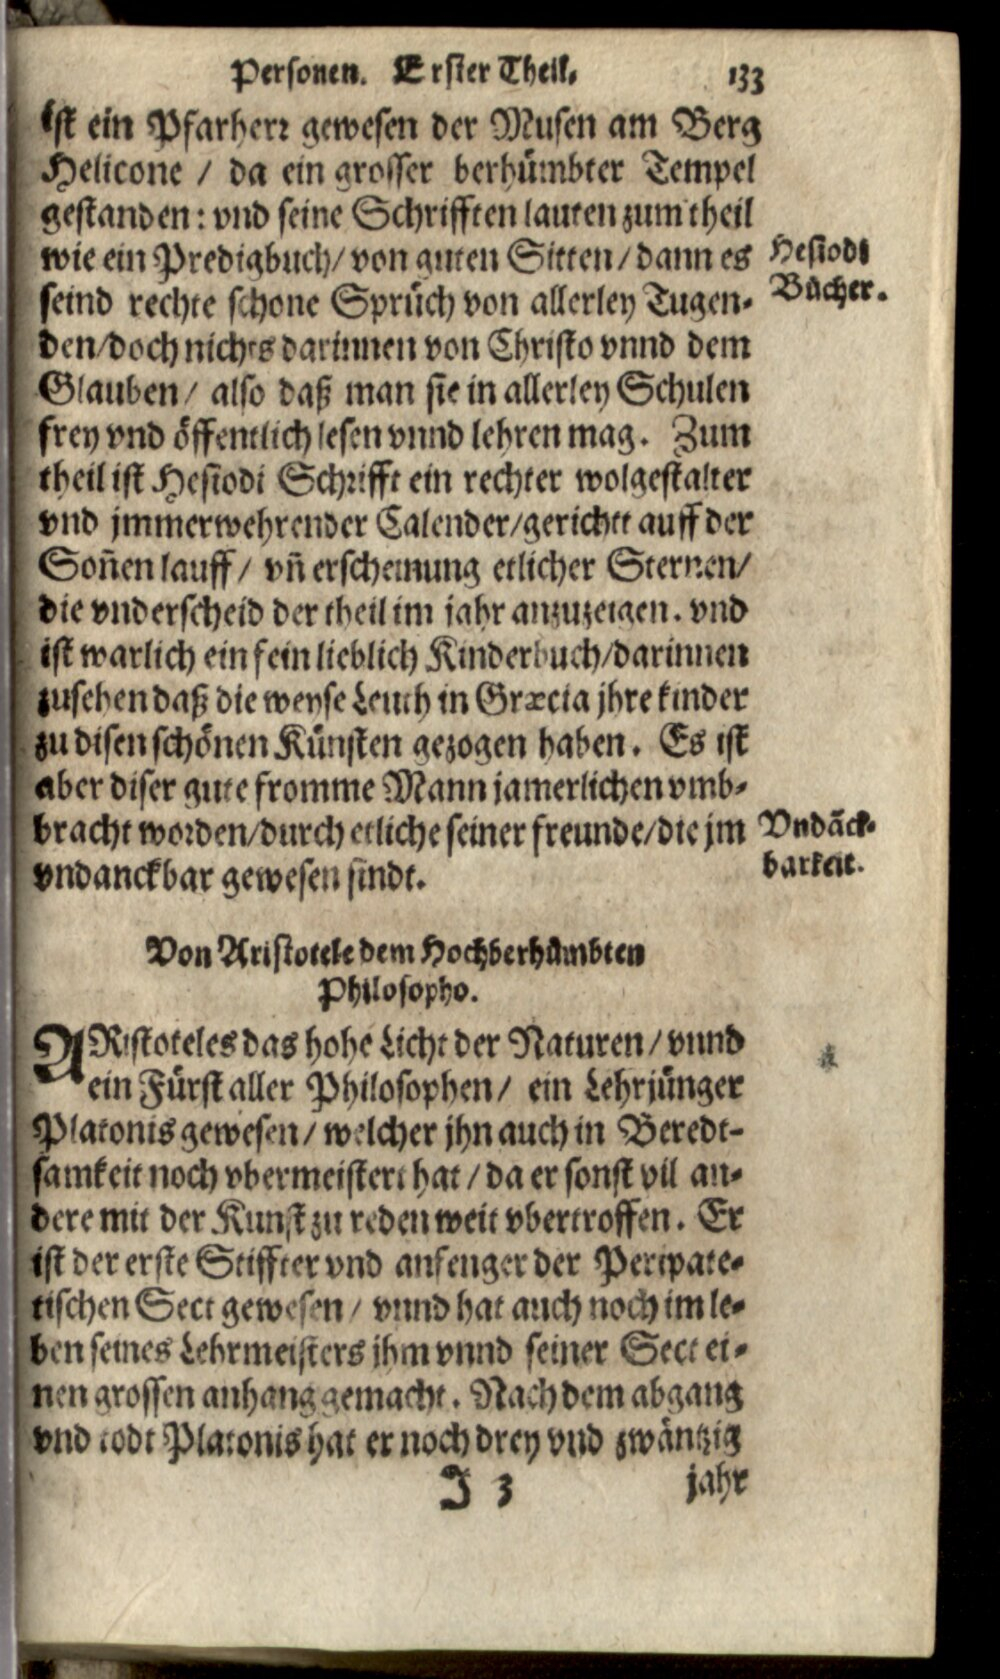 Personen. Erster Theil. 133
ist ein Pfarherr gewesen der Musen am Berg
Helicone / da ein grosser berhümbter Tempel
gestanden: vnd seine Schrifften lauten zum theil
wie ein Predigbuch/ von guten Sitten/ dann es
Hesiodi
seind rechte schone Sprüch von allerley Tugen-
Bücher.
den/doch nichts darinnen von Christo vnnd dem
Glauben/ also daß man sie in allerley Schulen
frey vnd öffentlich lesen vnnd lehren mag. Zum
theil ist Hesiodi Schrifft ein rechter wolgestalter
vnd jmmerwehrender Calender/gericht auff der
Soñen lauff/ vñ erscheinung etlicher Sternen/
die vnderscheid der theil im jahr anzuzeigen. vnd
ist warlich ein fein lieblich Kinderbuch/darinnen
zusehen daß die weyse Leuth in Græcia jhre kinder
zu disen schönen Künsten gezogen haben. Es ist
aber diser gute fromme Mann jamerlichen vmb-
bracht worden/durch etliche seiner freunde/die jm
Vndãck-
vndanckbar gewesen sindt.
barkeit.
Von Aristotele dem Hochberhümbten
Philosopho.
ARistoteles das hohe Licht der Naturen/ vnnd
ein Fürst aller Philosophen/ ein Lehrjünger
Platonis gewesen/ welcher jhn auch in Beredt-
samkeit noch vbermeistert hat / da er sonst vil an-
dere mit der Kunst zu reden weit vbertroffen. Er
ist der erste Stiffter vnd anfenger der Peripate-
tischen Sect gewesen/ vnnd hat auch noch im le-
ben seines Lehrmeisters jhm vnnd seiner Sect ei-
nen grossen anhang gemacht. Nach dem abgang
vnd todt Platonis hat er noch drey vnd zwäntzig
J 3 jahr